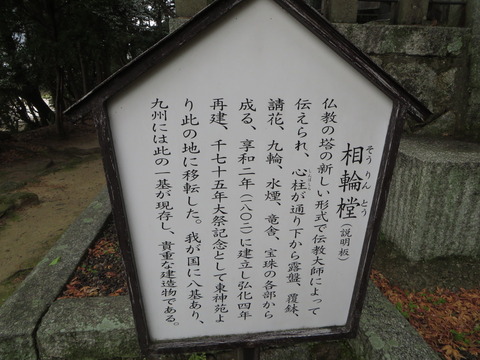 相輪橖（説明板）
そうりんとう
仏教の塔の新しい形式で伝教大師によって
伝えられ、心柱が通り下から露盤、覆鉢、
請花、九輪、水煙、竜舎、宝珠の各部から
成る、享和二年（一八〇二）に建立し弘化四年
再建、千七十五年大祭記念として東神苑よ
り此の地に移転した。我が国に八基あり、
九州には此の一基が現存し、貴重な建造物である。